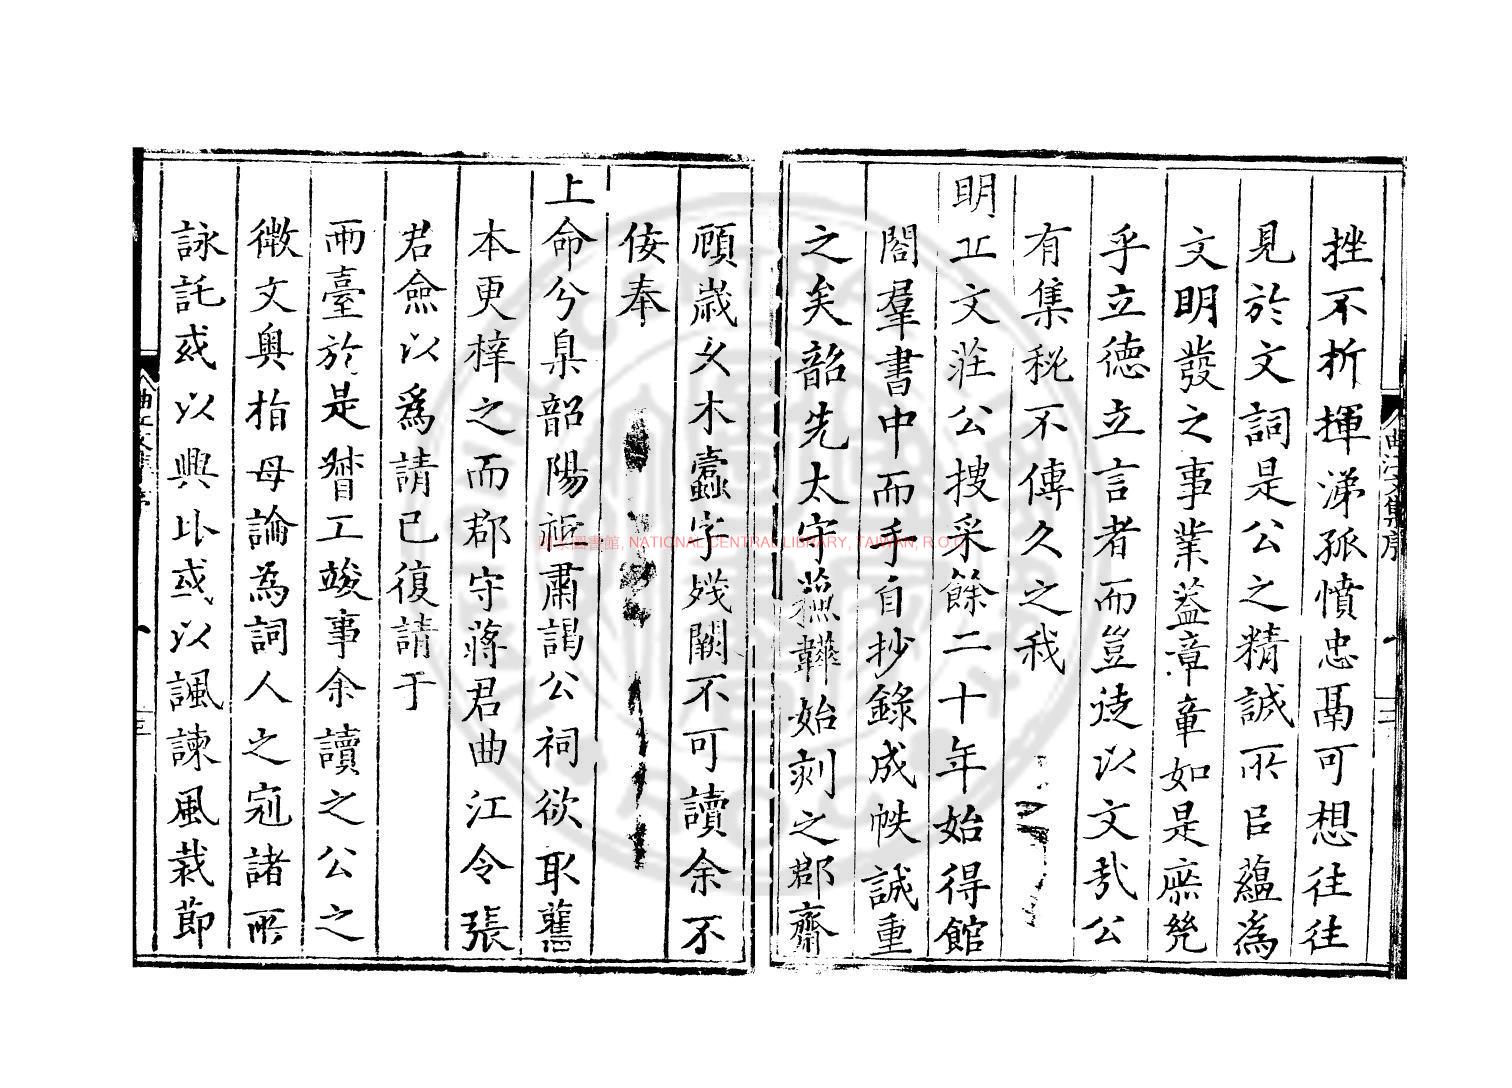 挫不折揮涕孤憤忠鬲可想往往
見於文詞是公之精誠所㠯蘊為
文明發之事業蓋章章如是庶幾
乎立德立言者而豈徒以文哉公
有集秘不傳久之我
明丘文莊公搜采餘二十年始得館
閣羣書中而手自抄錄成帙誠重
之矣韶先太守蘇韡始刻之郡齋
顧歲久木蠹字殘闕不可讀余不
佞奉
上命兮臬韶陽祗肅謁公祠欲取舊
本更梓之而郡守蔣君曲江令張
君僉以爲請已復請于
兩臺於是督工竣事余讀之公之
微文奧指毋論為詞人之冠諸所
詠託或以興比或以諷諫風裁節
曲江文集序
二
曲江文集序
三
國家圖書館, NATIONAL CENTRAL LIBRARY, TAIWAN, R.O.C